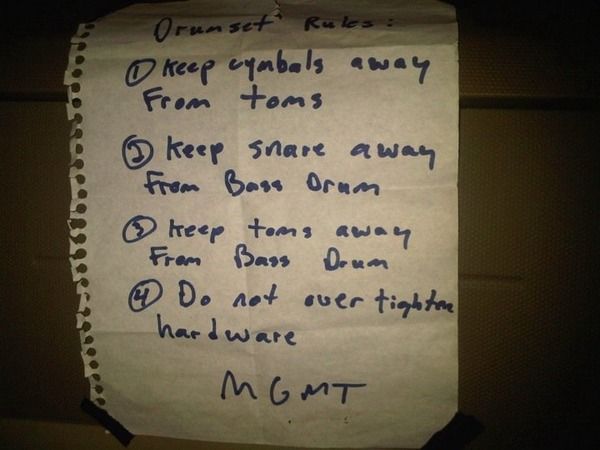 Drumset Rules:
① Keep cymbals away
From toms
② Keep snare away
From Bass Drum
③ Keep toms away
From Bass Drum
④ Do not over tighten
hardware
MGMT